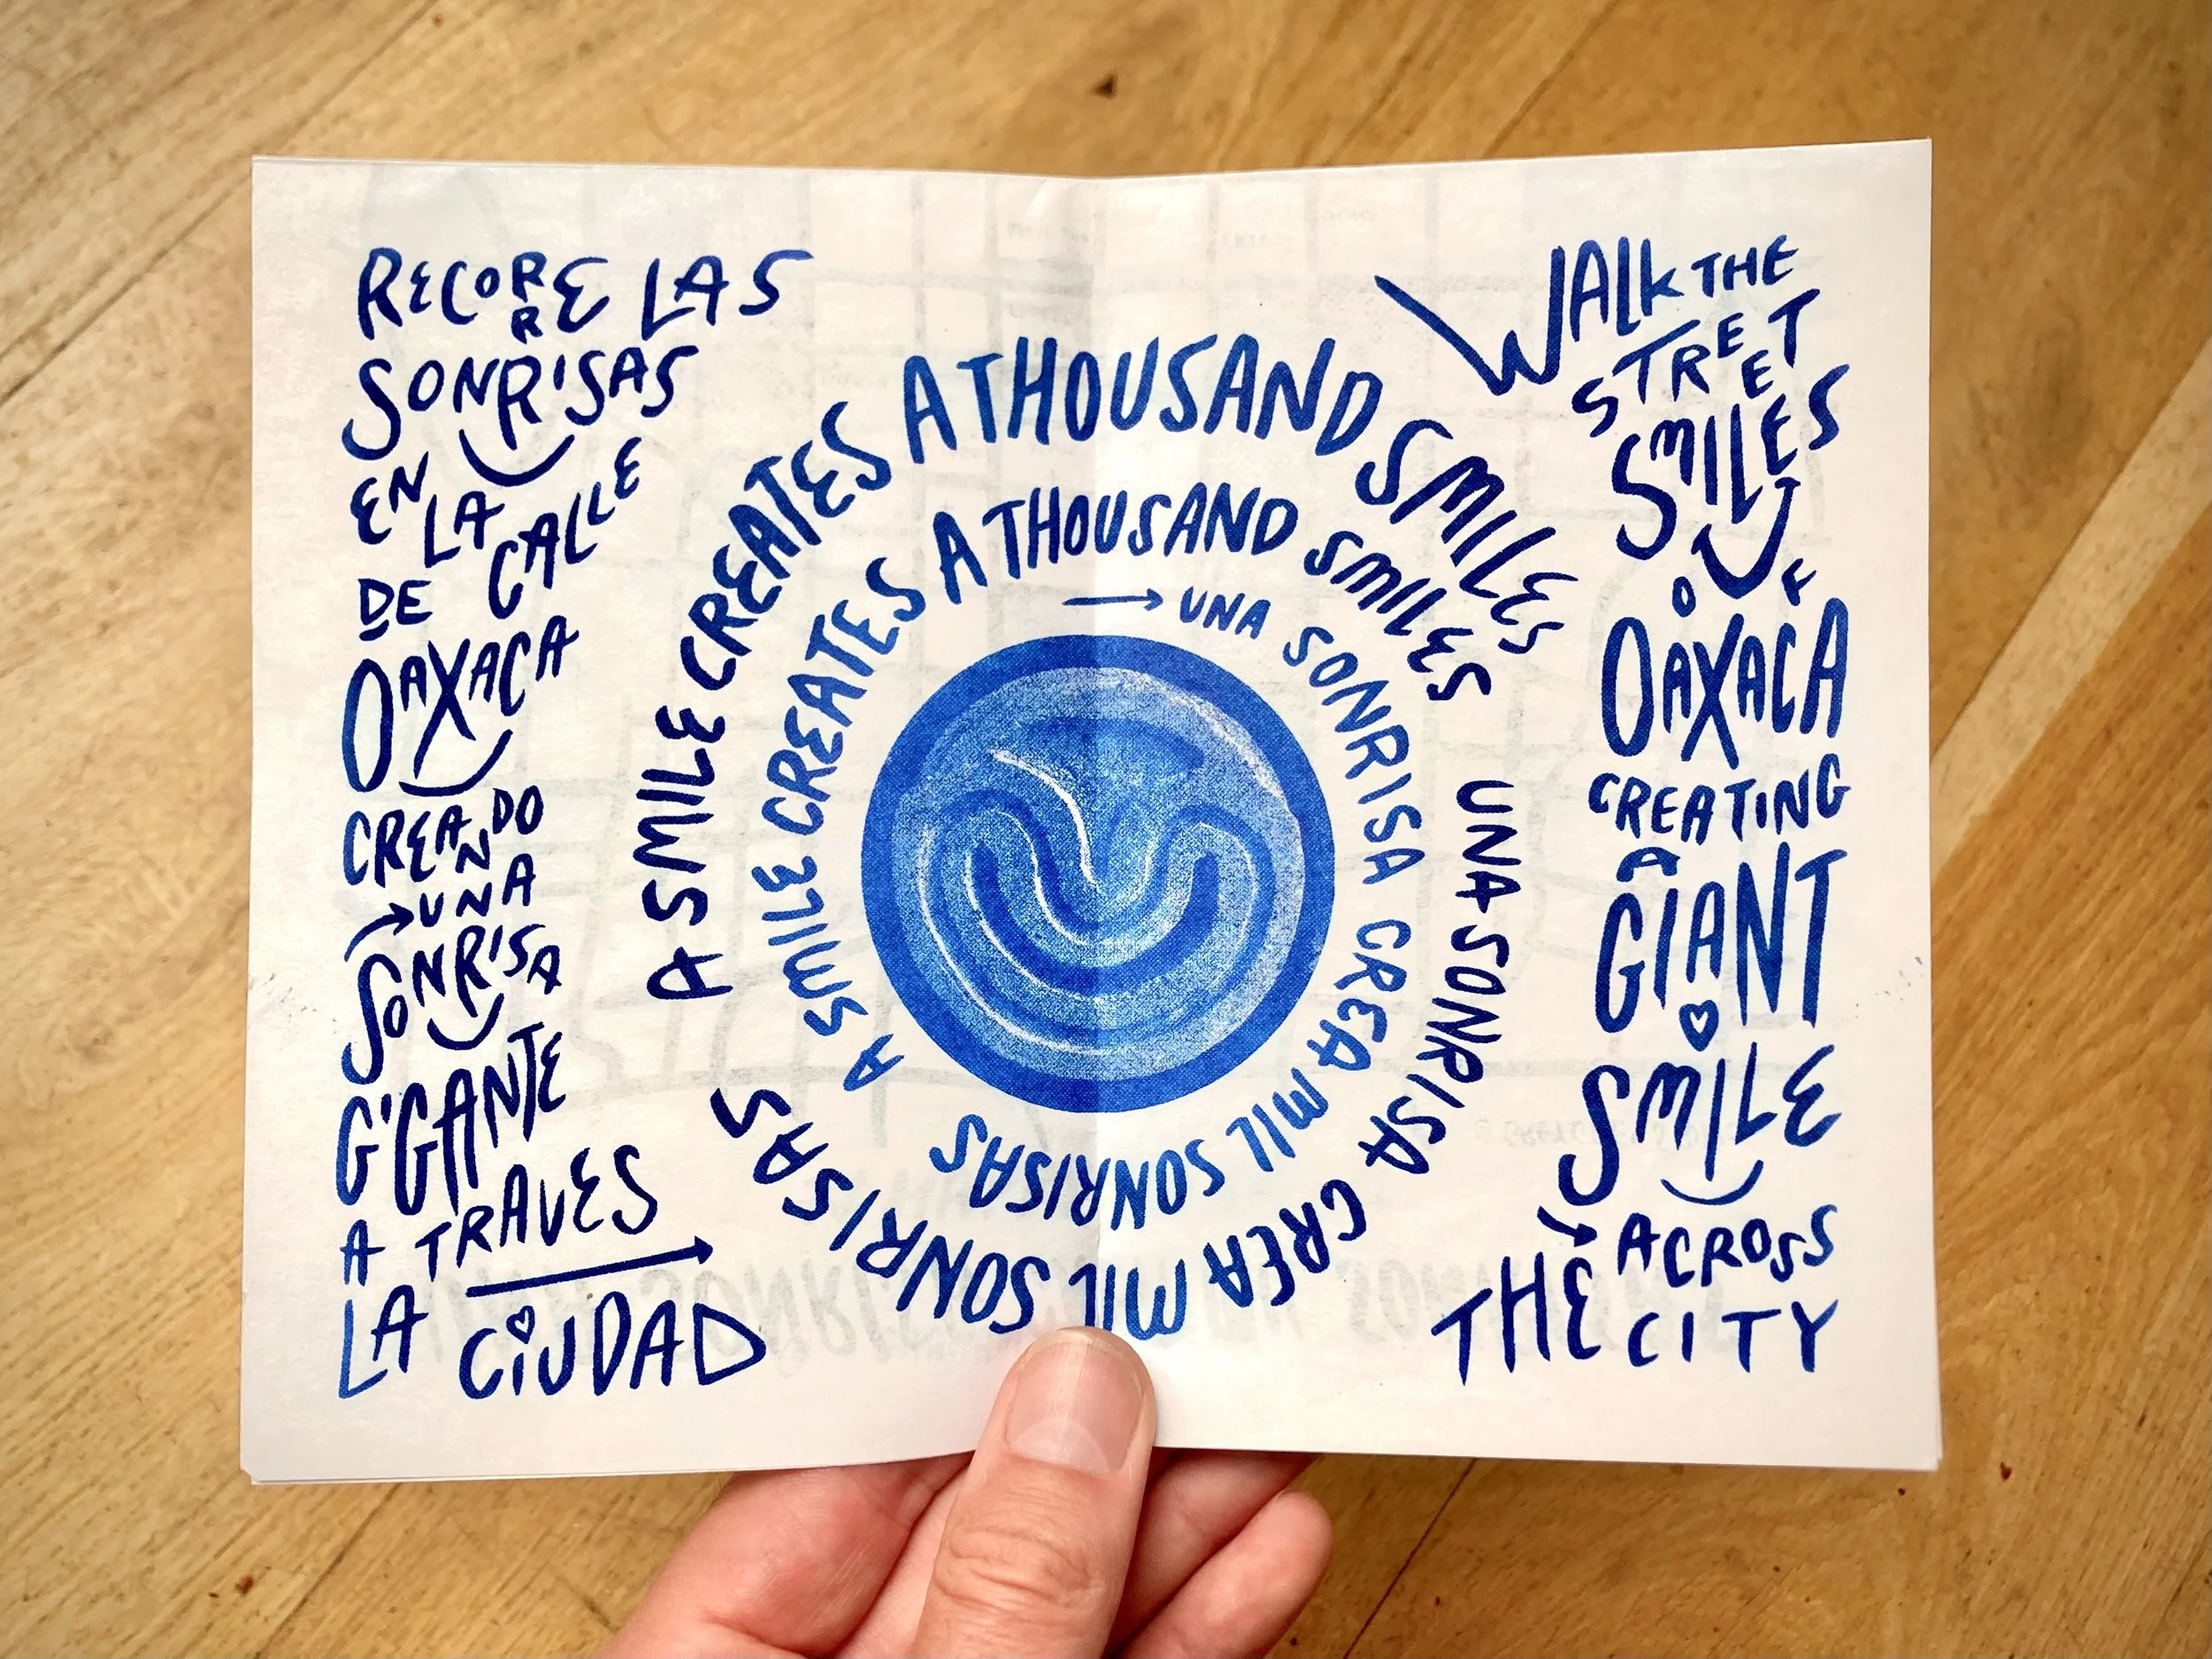 RECORRE LAS
SONRISAS
EN LA CALLE
DE
OAXACA
CREANDO
UNA
SONRISA
GIGANTE
A TRAVES
LA CIUDAD
A SMILE CREATES A THOUSAND SMILES
UNA SONRISA CREA MIL SONRISAS
A SMILE CREATES A THOUSAND SMILES
UNA SONRISA CREA MIL SONRISAS
WALK THE
STREET
SMILES
OF
OAXACA
CREATING
A
GIANT
SMILE
ACROSS
THE CITY